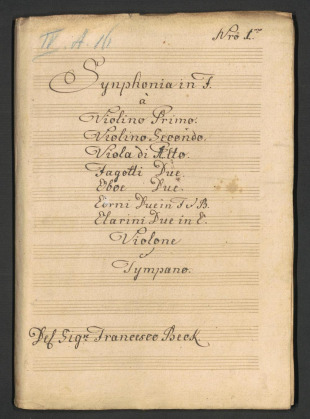 IV. A. 16
Nro 1.
Synphonia in F.
à
Violino Primo.
Violino Secondo.
Viola di Alto.
Fagotti Due.
Eboe Due.
Corni Due in F. B.
Clarini Due in C.
Violone
Tympano.
Del Sigr Francesco Beck